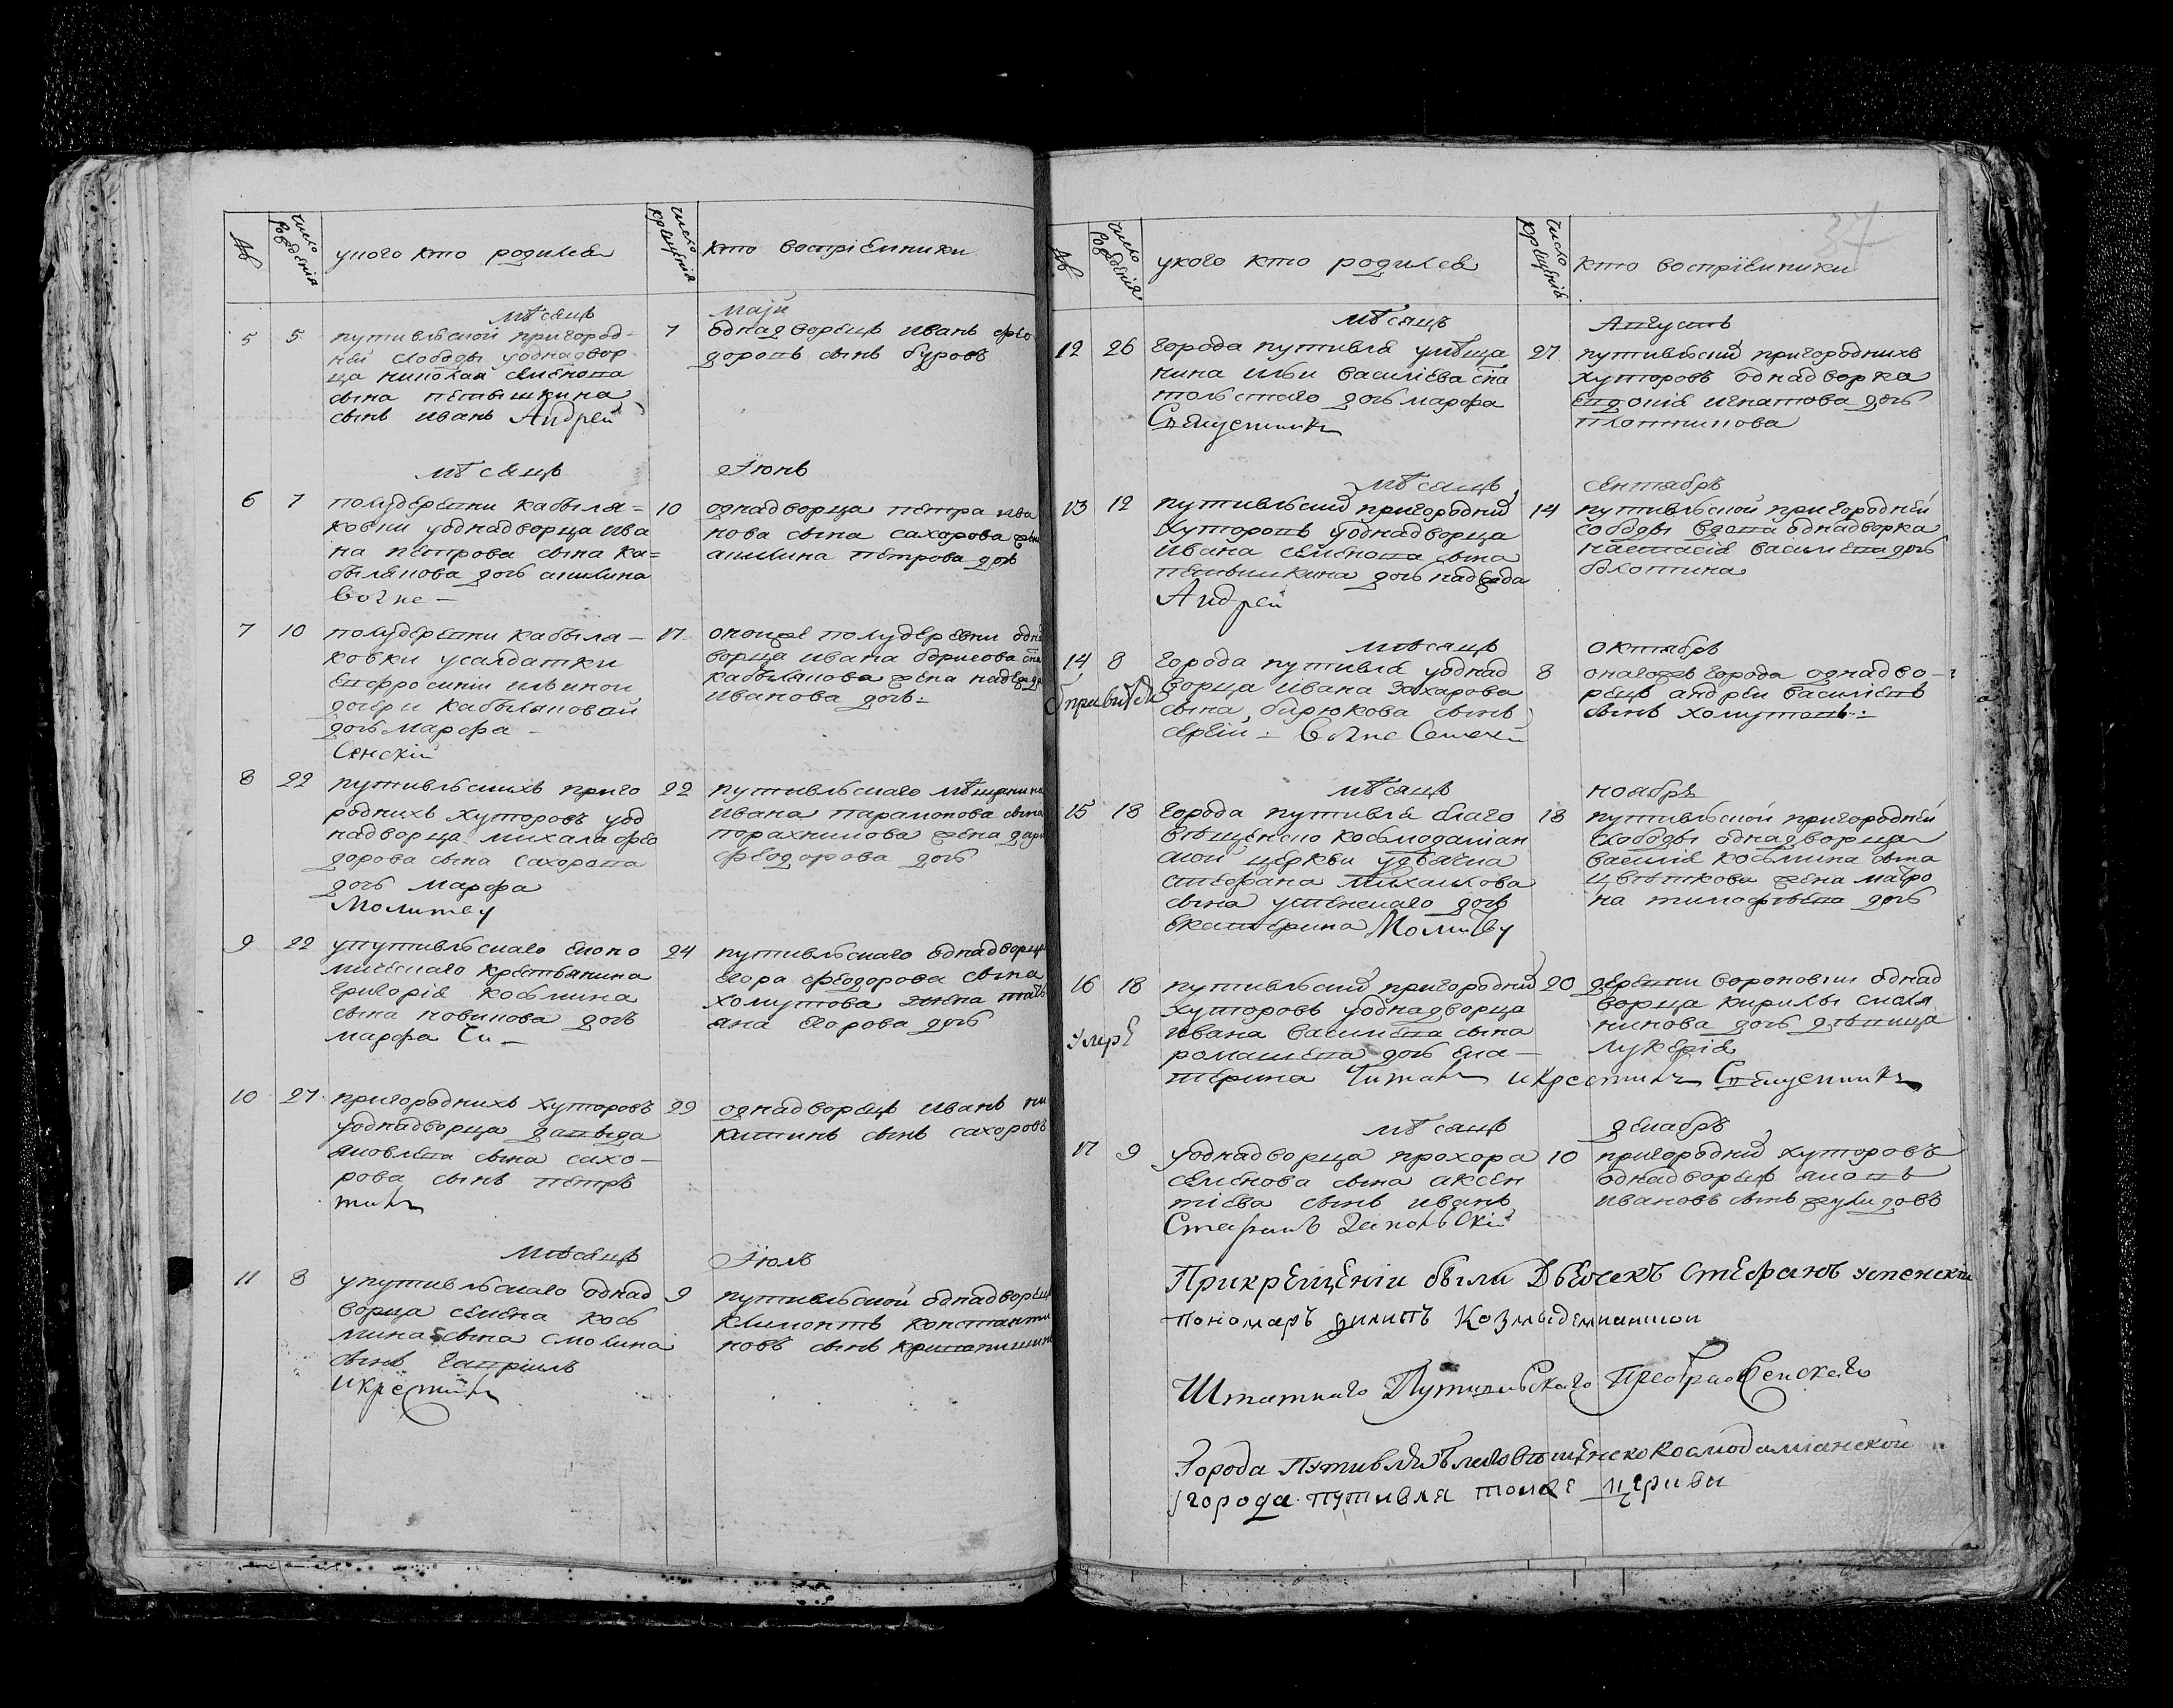 №
число рождения
укого кто родился
число крещения
кто востріемники
месяцъ
маіи
5 5
путивльской пригород-
ной слободы уоднадвор
ца николая семенова
сына петышкина
сынъ иванъ Андрей
7
однадворецъ иванъ фео
доровъ сынъ буровъ
месяцъ
Іюнь
6 7
полудеревни кабыля-
ковки уоднадворца ива
на петрова сына ка=
былякова дочь акилина
10
однадворца петра ива
нова сына сахорова жена
акилина петрова дочь
7 10
полудеревни кабыля-
ковки усалдатки
Евфросиніи ильиной
дочери кабыляковой
дочь марфа
Сенскій
17
оноиже полудеревни однад
ворца ивана борисова сна
кабылякова жена надежда
иванова дочь
8 22
путивльскихъ приго
роднихъ хуторовъ уод
надворца михаила фео
дорова сына сахорова
дочь марфа
Молитву
22
путивльскаго мещанина
ивана парамонова сына
порахникова жена дарія
феодорова дочь
9 22
упутивльскаго еконо
мическаго крестьянина
григорія косьмина
сына новикова дочь
марфа Чи
24
путивльскаго однадворца
егора феодорова сына
холутова жена тать
яна егорова дочь
10 27
пригороднихъ хуторовъ
уоднадворца давыда
яковлева сына сахо-
рова сынъ петръ
29
однадворецъ иванъ ни
китинъ сынъ сахоровъ
месяцъ
Іюль
11 8
упутивльскаго однад
ворца семена кось
мина сына смокина
сынъ гавріилъ
икрестилъ
9
путивльской однадворецъ
климонтъ константи
новъ сынъ
№
число рождения
укого кто родился
число крещения
кто востріемники
37
месяцъ
Августъ
12 26
города путивля умеща
нина ильи василіева сна
толстаго дочь марфа
Священникъ
27
путивльскихъ пригороднихъ
хуторовъ однадворка
евдокія игнатова дочь
плотникова
месяцъ
сентябръ
13 12
путивльскихъ пригороднихъ
хуторовъ уоднадворца
ивана семенова сына
петышкина дочь надежда
Андрей
14
путивльской пригородней
слободы вдова однадворка
настасія василіева дочь
болотина
месяцъ
октябръ
14 8
города путивля уоднад
ворца ивана захарова
сына бирюкова сынъ
сергій
8
онагожъ города однадво-
рецъ андреи василіевъ
сынъ холутовъ
месяцъ
ноябръ
15 18
города путивля благо
вещенско косьмодаміан
ской церкви удьячка
стефана михаилова
сына успенскаго дочь
екатерина Молитву
18
путивльской пригородней
слободы однадворца
василія косьмина сына
цветкова жена матро
на тимофеева дочь
16 18
путивльскихъ пригороднихъ
хуторовъ уоднадворца
ивана василіева сына
ромашева дочь ека-
терина Читалъ икрестилъ Священникъ
20
деревни вороновки однад
ворца кирилы
дочь девица
лукерія
месяцъ
декабръ
17 9
уоднадворца прохора
семенова сына аксен
тіева сынъ иванъ
10
пригороднихъ хуторовъ
однадворецъ яковъ
ивановъ сынъ
Прикрещеніи были Дьячекъ Стефанъ успенскій
пономаръ филипъ
Штатнаго Путивльскаго Преображенскаго
Города Путивля Благовещенско Космодаміанской
города путивля тоиже церкви